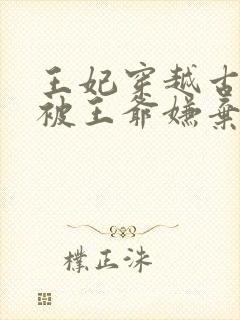 王妃穿越古
被王爷嫌弃
樸正洙